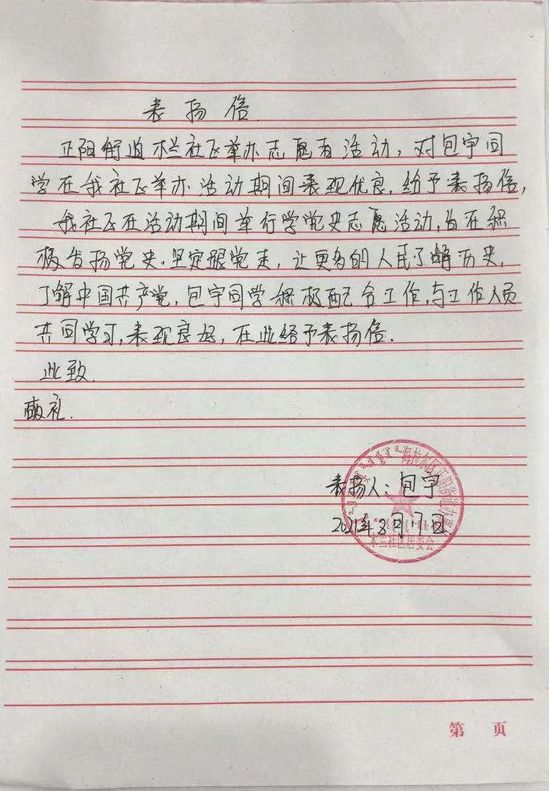 表扬信
正阳街道木兰社区举办志愿者活动，对包宇同
学在我社区举办活动期间表现优良，给予表扬信，
我社区在活动期间举行学党史志愿活动，旨在积
极发扬党史，坚定跟党走，让更多的人民了解历史，
了解中国共产党，包宇同学积极配合工作，与工作人员
共同学习，表现良好，在此给予表扬信．
此致．
敬礼．
表扬人：包宇
2021年8月17日
海拉尔区正阳街道办事
木兰社区居委会
第 页